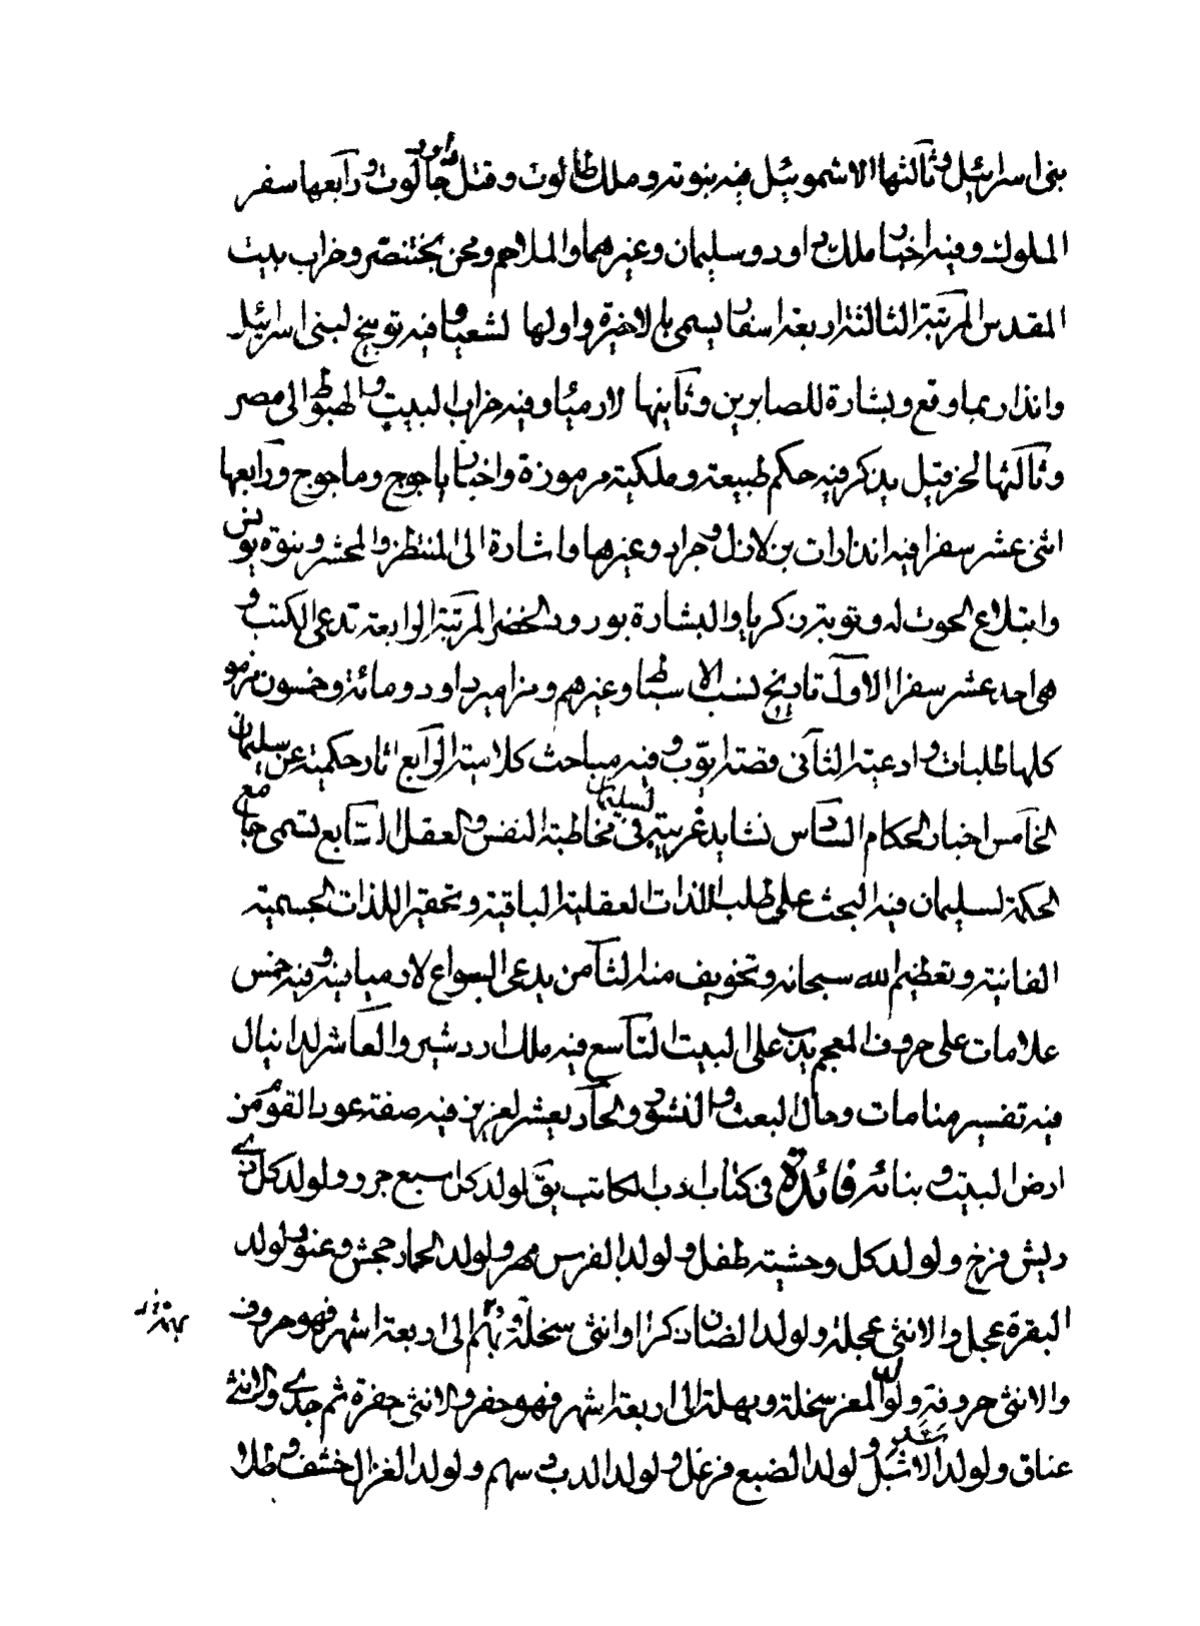 بنى اسرائيل وثالثها لاشموئيل فيه نبوته وملك طالوت وقتل داود جالوت ورابعها سفر
الملوك وفيه اخبار ملك داود وسليمان وغيرهما والملاحم ومحن بختنصر وخراب بيت
المقدس المرتبة الثالثة اربعة اسفار يسمى بالاخيرة واولها لشعيا وفيه توبيخ لبنى اسرائيل
وانذار بما وقع وبشارة للصابرين وثانيها لارميا وفيه خراب البيت والهبوط الى مصر
وثالثها لحزقيل يذكر فيه حكم طبيعة وملكية مرموزة واخبار ياجوج وماجوج ورابعها
اثنى عشر سفرا فيه انذارات بزلازل وجراد وغيرها واشارة الى المنتظر والمحشر ونبوة يونس
وابتلاع الحوت له وتوبة زكريا والبشارة بورود الخضر المرتبة الرابعة تدعى الكتب و
هى احد عشر سفرا الاول تاريخ نسب الاسباط وغيرهم ومزامير داود ومائة وخمسون مزمو
كلها طلبات وادعية الثانى قصة ايوب وفيه مباحث كلامية الرابع اثار حكمية عن سليمان
الخامس اخبار الحكام السادس نشايد غريبة لسليمان فى مخاطبة النفس والعقل السابع تسمى جامع
الحكمة لسليمان فيه البحث على طلب اللذات العقلية الباقية وتحقير اللذات الجسمية
الفانية وتعظيم الله سبحانه وتخويف منه الثامن يدعى البواع لارميا فيه وفيه خمس
علامات على حروف المعجم يندب على البيت التاسع فيه ملك اردشير والعاشر لدانيال
فيه تفسير منامات وحال البعث والنشور والحادى عشر لعزيز فيه صفة عود القوم من
ارض البيت وبنائه فائدة فى كتاب ادب الكاتب يق لولد كل سبع جرو ولولد كل ذى
ريش فرخ ولولد كل وحشية طفل ولولد الفرس مهر ولولد الحمار جحش وعفو ولولد
البقرة عجل والانثى عجلة ولولد الضان ذكرا او انثى سخلة وبهم الى اربعة اشهر فهو حروف
والانثى حروفة ولولد المعز سخلة وبهلة الى اربعة اشهر فهو جفر والانثى جفرة ثم جدى والانثى
عناق ولولد الاسد شبل ولولد الضبع فرغل ولولد الدب وسهم ولولد الغزال خشف وطلا